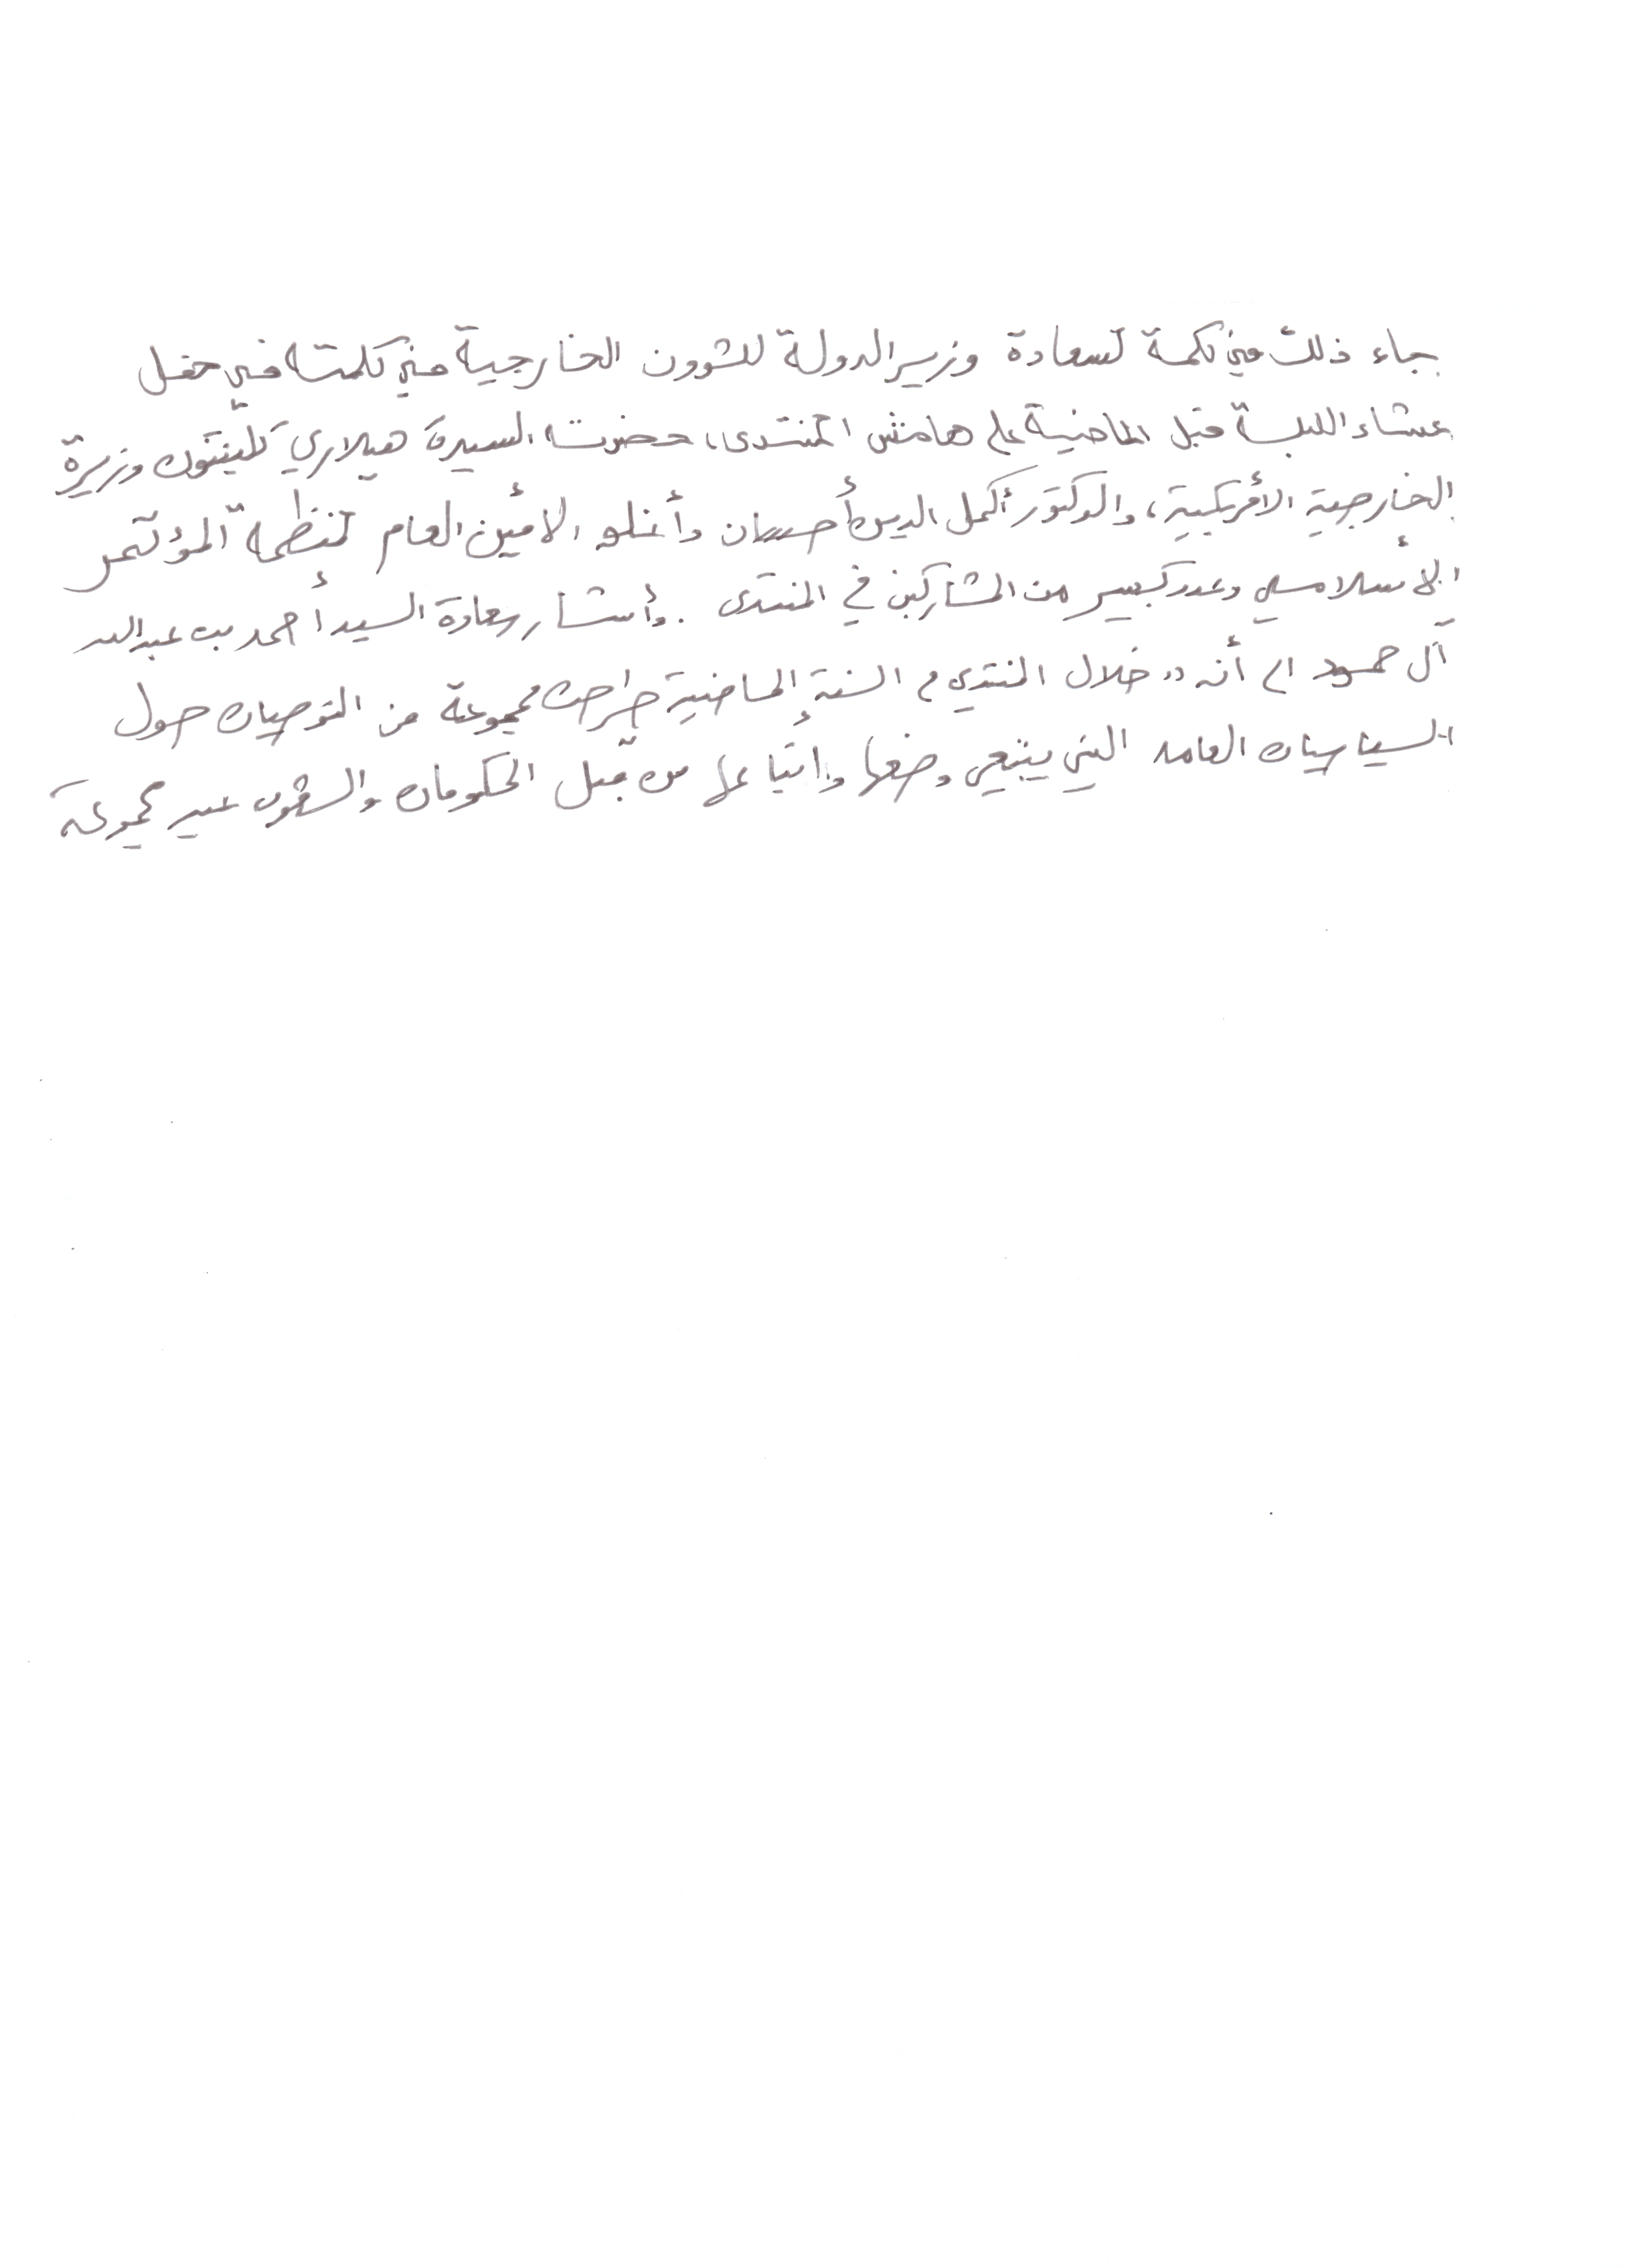 جاء ذلك في كلمة لسعادة وزير الدولة للشؤون الخارجية في كلمته في حفل
عشاء الليلة قبل الماضية على هامش المنتدى، حضرته السيدة هيلاري كلينتون وزيرة
الخارجية الأمريكية، والدكتور أكمل الدين أحسان وأغلو الامين العام لمنظمة المؤتمر
الأسلامي وعدد كبير من المشاركين في المنتدى. وأشار سعادة السيد أحمد بن عبدالله
آل حمود الى أنه "خلال المنتدي السنة الماضية طرحت مجموعة من التوصيات حول
السياسات العامه التي ينبغي وضعها واتباعها من قبل الحكومات والشعوب عبر مجموعة